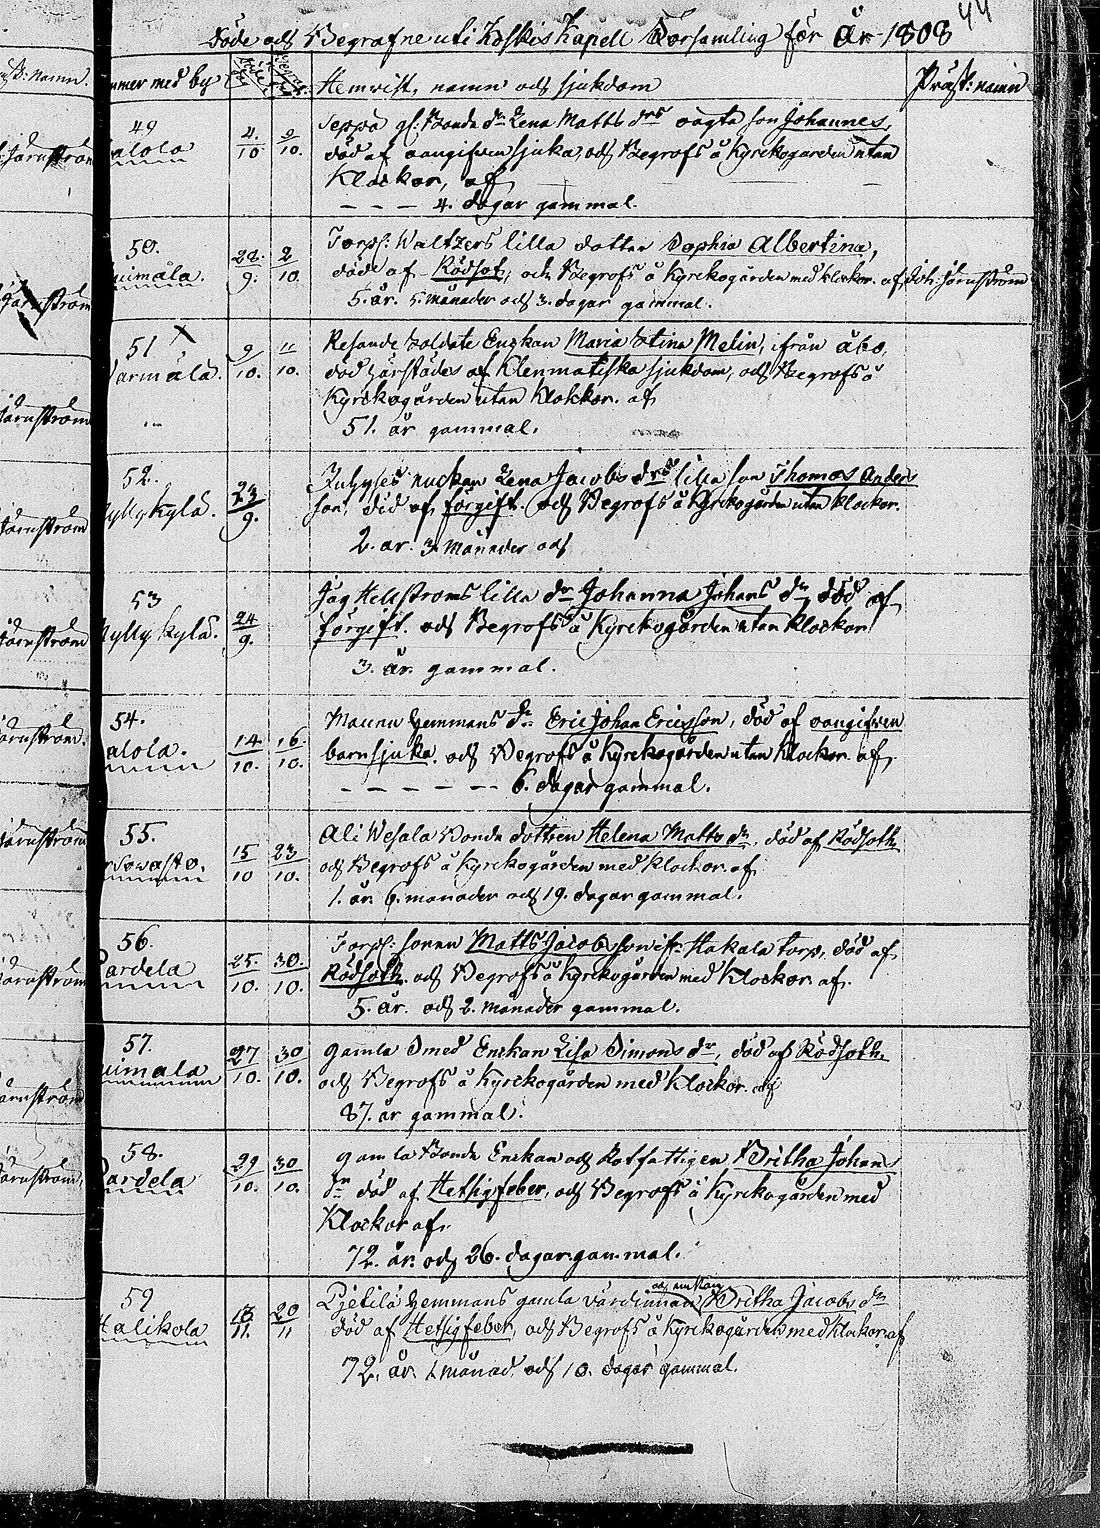 44
Döde och Begrafne uti Koskis Kapell Församling för År 1808
Nummer med by
Hemvist, namn och sjukdom
Präst: namn
49
alola
4/10 9/10.
Seppä gl: Bonde dr Lena Matts drs oägta son Johannes,
död af oangifven sjuka, och Begrofs å Kyrckogården utan
Klockor, af
4. dagar gammal.
50.
uimåla.
22./9. 2/10.
Torp: Waltzers lilla dotter Sophia Albertina,
döde af Rödsot, och Begrofs å Kyrckogården med klockor. af Joh: Järnström
5. år. 5. månader och 3. dagar gammal.
51 X
armåla.
9/10. 11/10.
Resande Soldate Enckan Maria Stina Melin, ifrån åbo,
död härstädes af sjukdom, och Begrofs å
Kyrckogården utan Klockor. af
51. år gammal.
52.
yllykylä.
23/9.
Lena Jacobs drs lilla son Thomas Anders
son, död af förgift. och Begrofs å Kyrckogården utan klockor.
2. år. 3. månader och
53
yllykylä.
24/9.
Jäg Hellströms lilla dr Johanna Johans dr död af
förgift. och Begrofs å Kyrckogården utan klockor
3. år gammal.
54.
alola.
14/10. 16/10.
Maunu hemmans Eric Johan Ericsson, död af oangifven
barnsjuka. och Begrofs å Kyrckogården utan Klockor. af
6. dagar gammal.
55.
Sowasto.
15/10 23/10.
Ali Wesala Bonde dottren Helena Matts dr, död af Rödsoth
och Begrofs å Kyrckogården med klockor. af
1. år. 6. månader och 19. dagar gammal.
56.
ardela
25./10. 30./10.
Torp: sonen Matts Jacobsson ifr. Hakala torp, död af
Rödsoth. och Begrofs å Kyrckogården med Klockor. af.
5. år. och 2. månader gammal.
57.
uimala
27/10. 30/10.
gamla Smed Enckan Lisa Simons dr, död af Rödsoth
och Begrofs å Kyrckogården med Klockor. af
87. år gammal.
58.
ardela
29/10. 30/10.
gamla Bonde Enckan och Rotfattigen Britha Johans
dr död af Hetsigfeber, och Begrofs å Kyrckogården med
Klockor af,
72. år. och 26. dagar gammal.
59
alikola
13/11. 20/11
Pjetilä hemmans gamla värdinnan och enckan Britha Jacobs dr
död af Hetsigfeber, och Begrofs å Kyrckogården med klockor. af
72. år. 1 månad. och 10. dagar gammal.